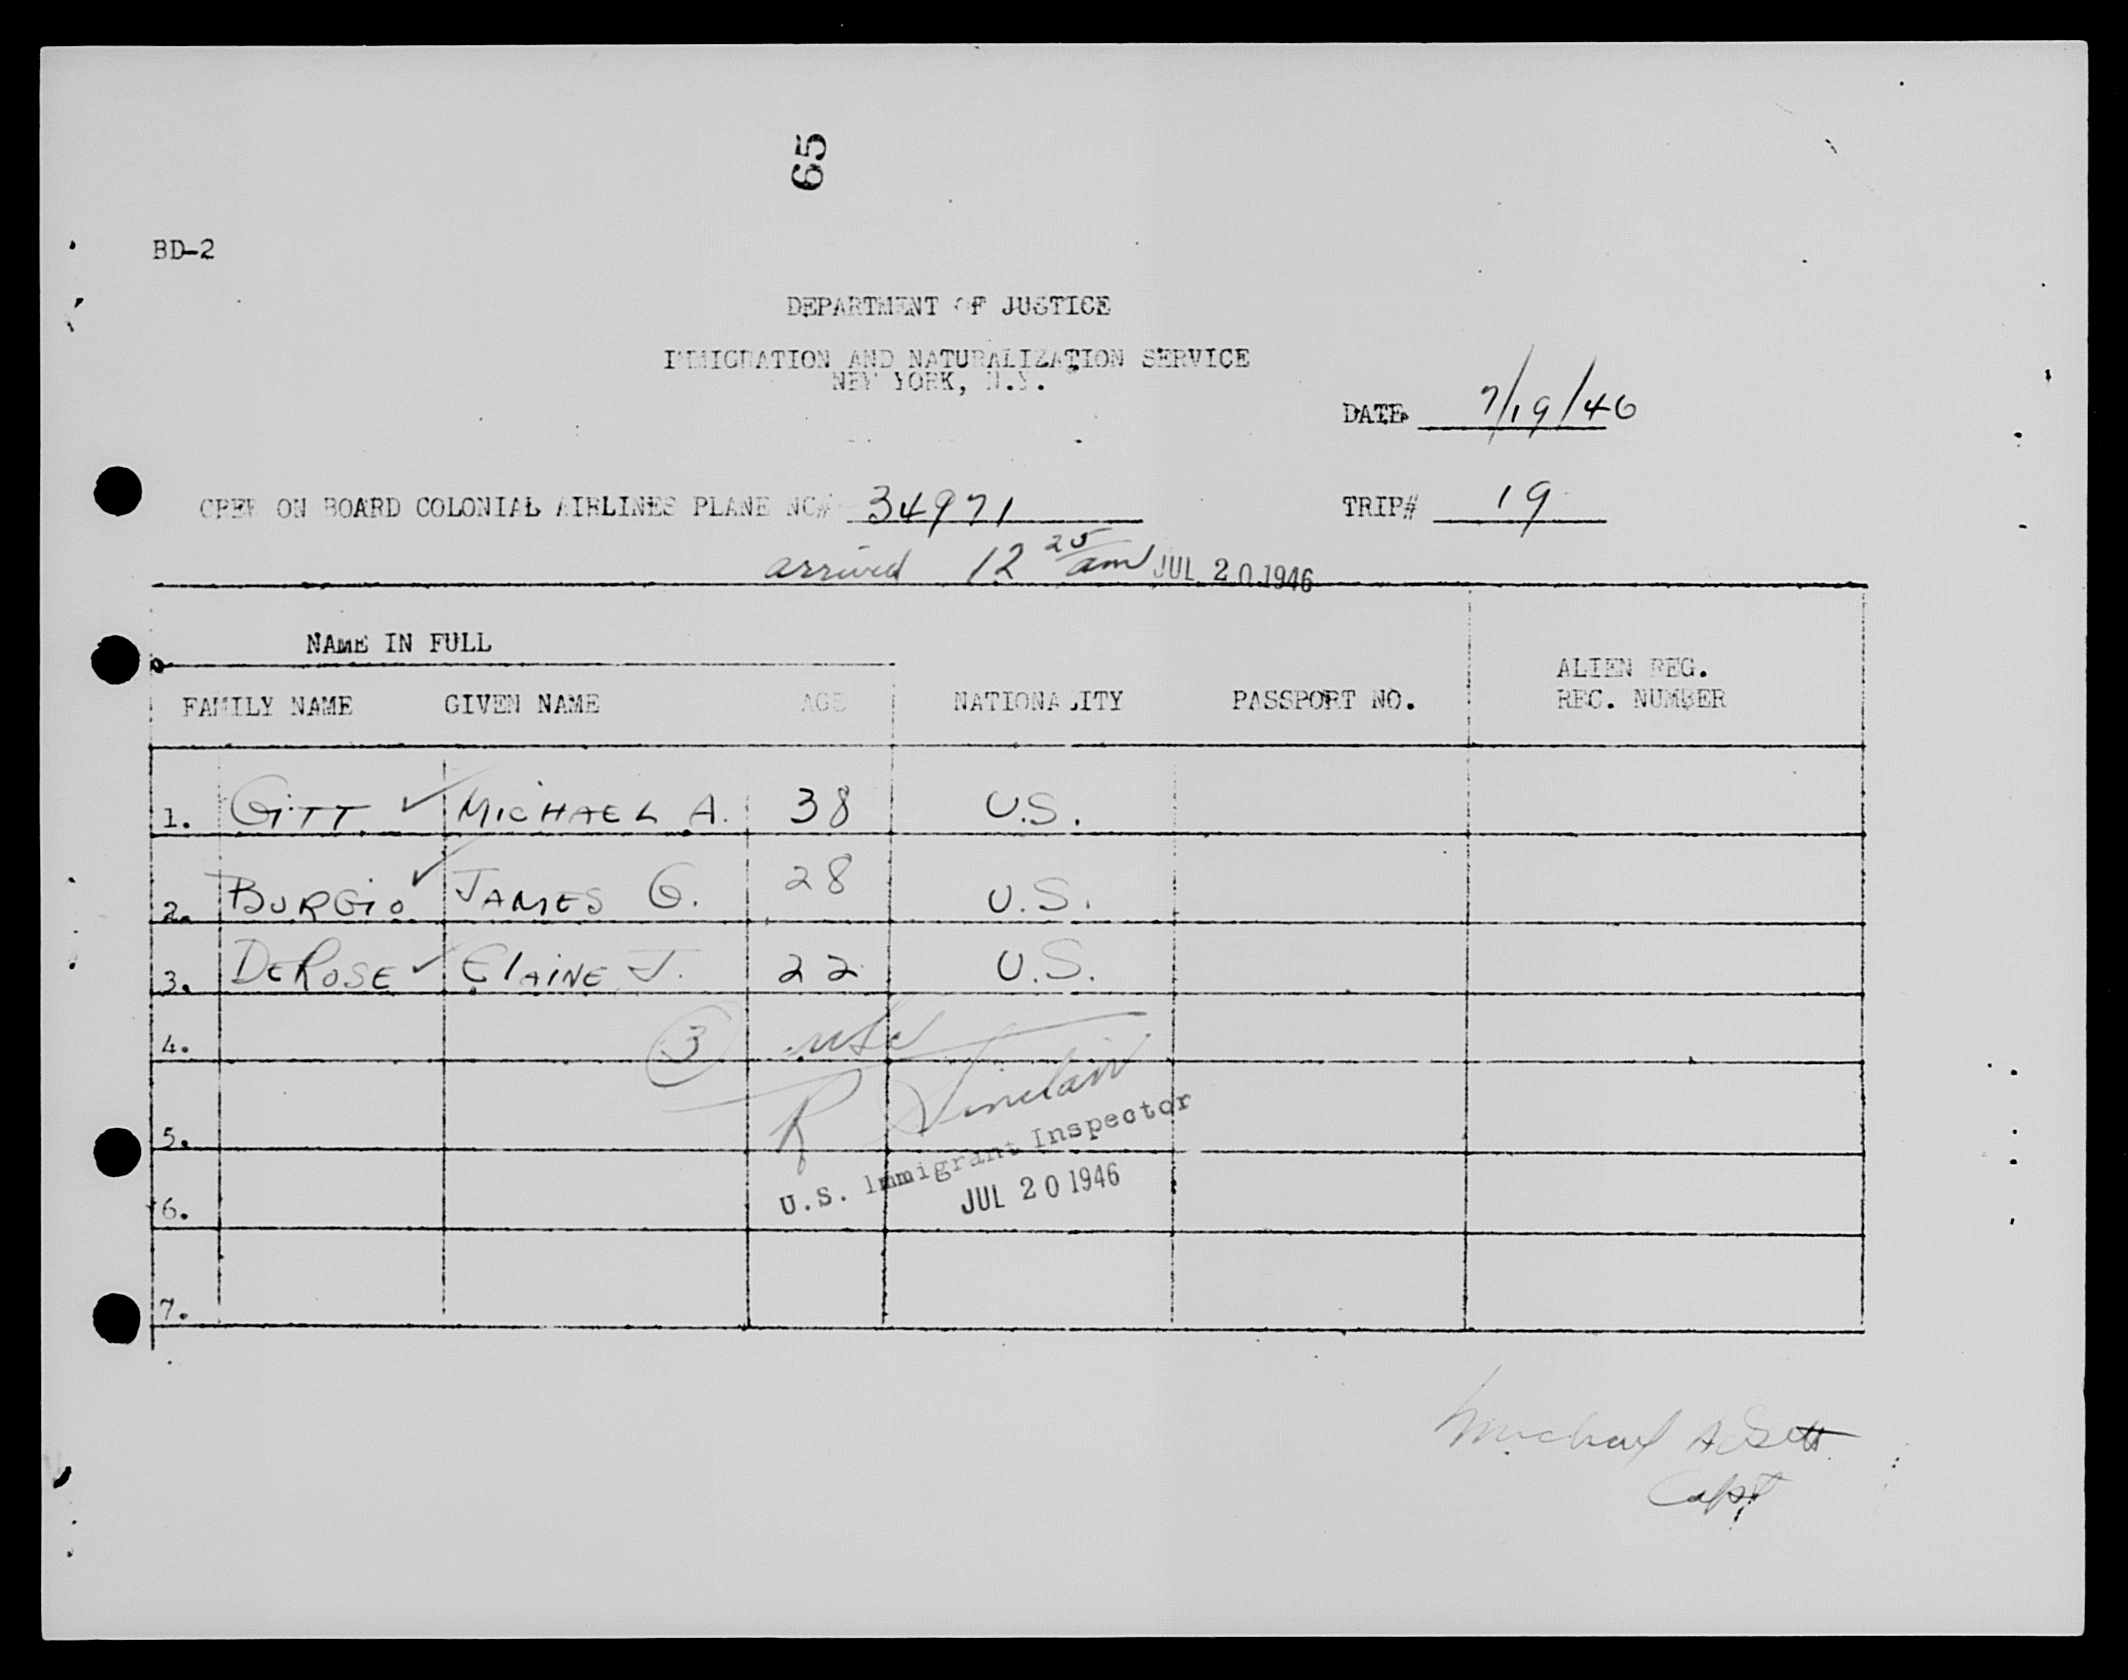 65
BD-2
DEPARTMENT OF JUSTICE
IMMIGRATION AND NATURALIZATION SERVICE
NEW YORK, N.Y.
DATE 7/19/46
CREW ON BOARD COLONIAL AIRLINES PLANE NC# 34971 TRIP# 19
arrived 12 25 am JUL 20 1946
NAME IN FULL
ALIEN REG.
FAMILY NAME GIVEN NAME AGE NATIONALITY PASSPORT NO. REC. NUMBER
1. GITT ✓ MICHAEL A. 38 U.S.
2. BURGIO ✓ JAMES G. 28 U.S.
3. DEROSE ✓ ELAINE J. 22 U.S.
4. 3 usc
R Sinclair
5.
U.S. Immigrant Inspector
6. JUL 20 1946
7.
Michael A Gitt
Capt